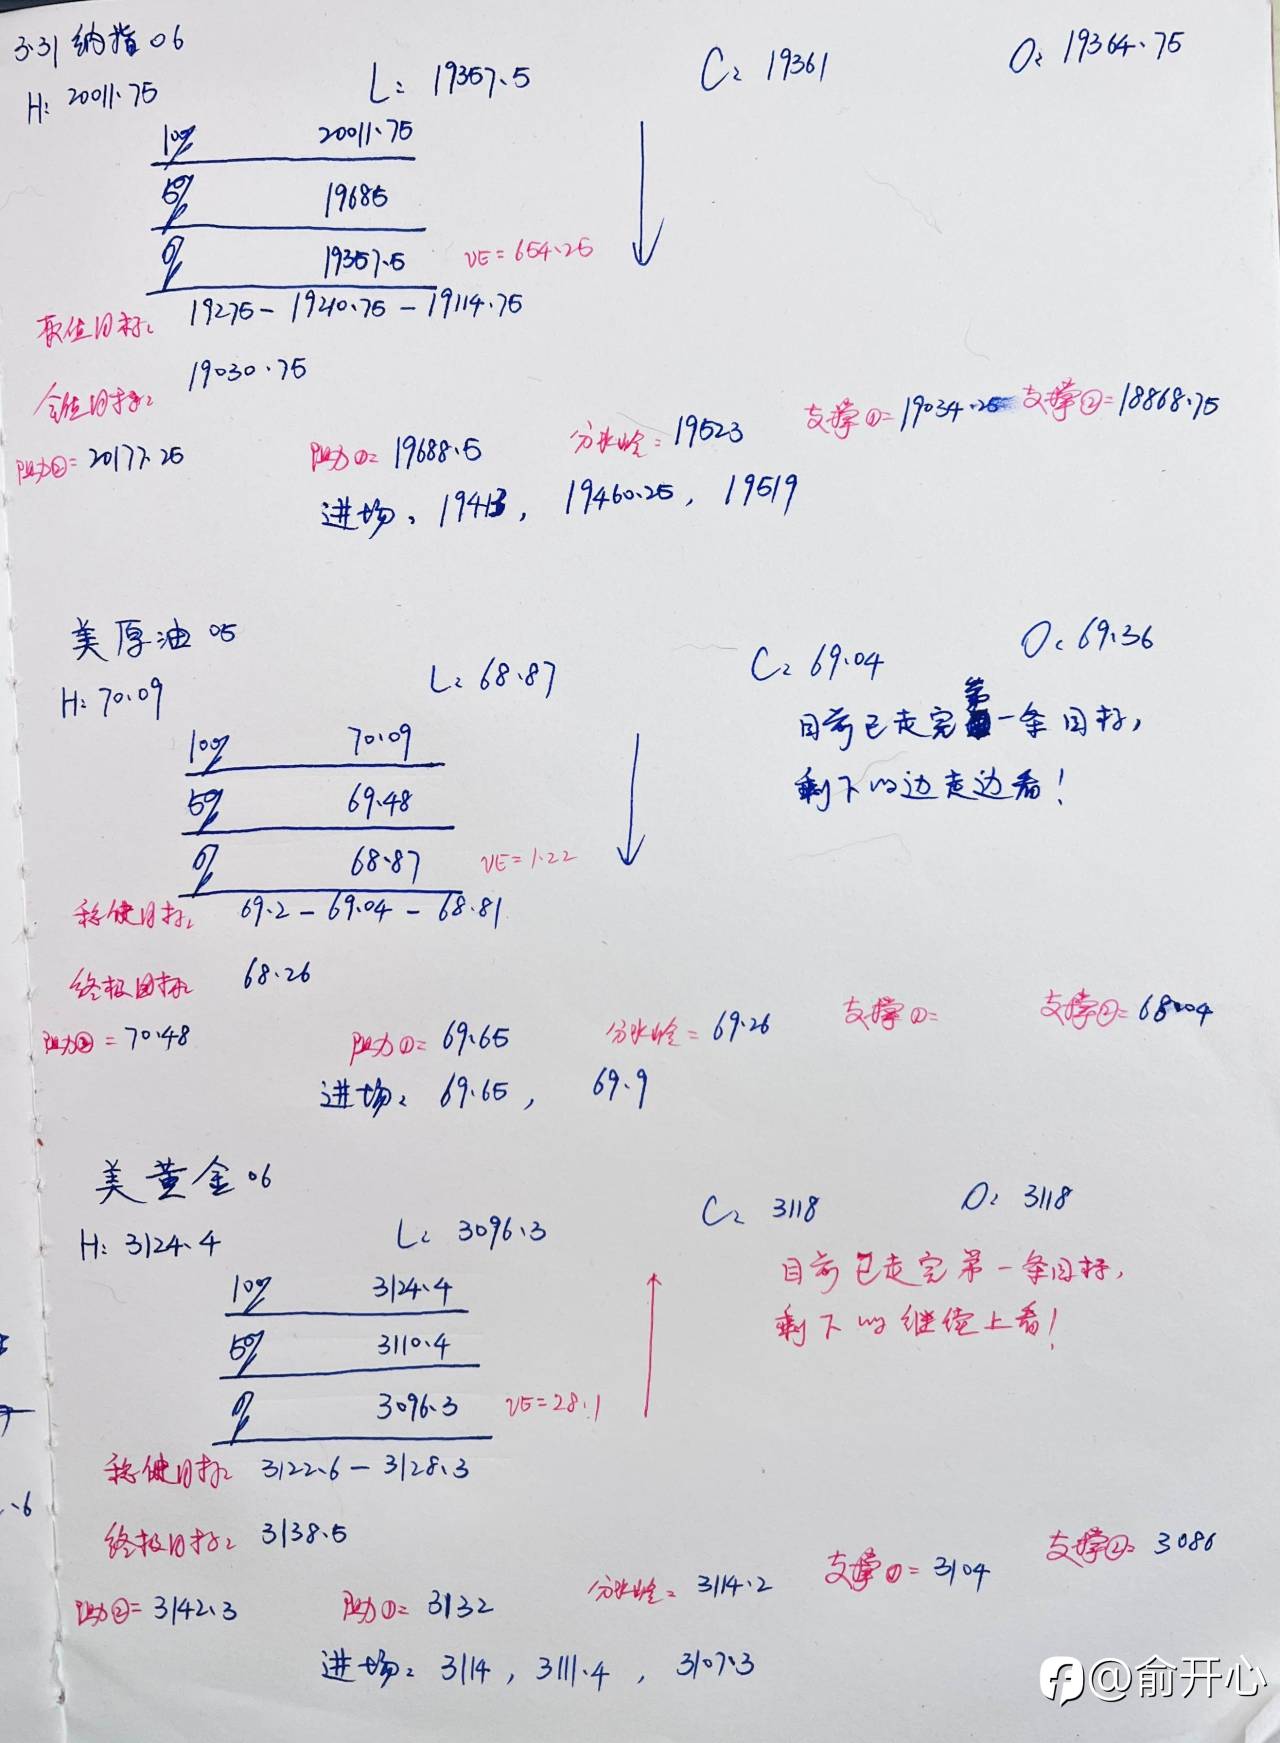 3.31 纳指06
H: 20011.75 L: 19357.5 C: 19361 O: 19364.75
100% 20011.75
50% 19685
0% 19357.5 VE=654.25
19275-19210.75-19114.75
19030.75
阻力②=20177.25 阻力①=19688.5 分水岭=19523 支撑①=19034.25 支撑②=18868.75
进场: 19413, 19460.25, 19519
美原油05
H: 70.09 L: 68.87 C: 69.04 O: 69.36
目前已走完第一条目标,
剩下的边走边看!
100% 70.09
50% 69.48
0% 68.87 VE=1.22
稳健目标: 69.2-69.04-68.81
终极目标: 68.26
阻力②=70.48 阻力①=69.65 分水岭=69.26 支撑①= 支撑②=68.04
进场: 69.65, 69.9
美黄金06
H: 3124.4 L: 3096.3 C: 3118 O: 3118
目前已走完第一条目标,
剩下的继续上看!
100% 3124.4
50% 3110.4
0% 3096.3 VE=28.1
稳健目标: 3122.6-3128.3
终极目标: 3138.5
阻力②=3142.3 阻力①=3132 分水岭=3114.2 支撑①=3104 支撑②=3086
进场: 3114, 3111.4, 3107.3
@俞开心